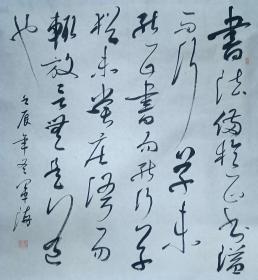 書法備於正書溢
而行草未
能正書而能行草
猶未嘗莊語而
輒放言無是道
也
壬辰年